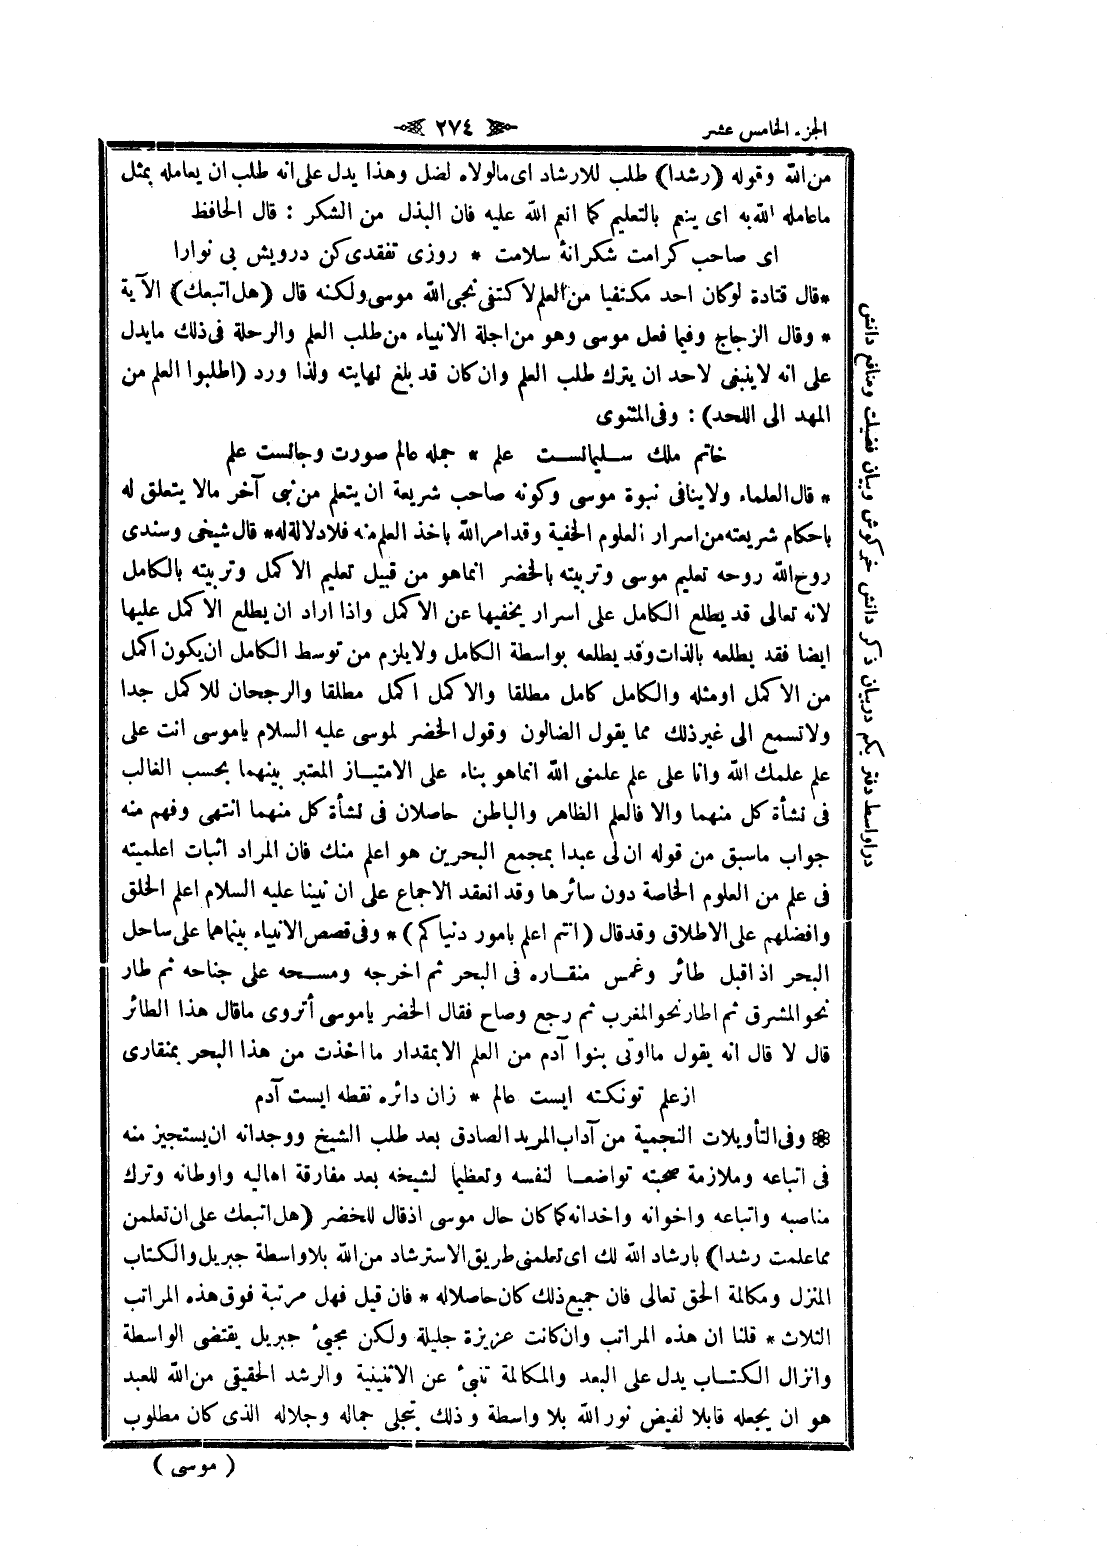 الجزء الخامس عشر
٢٧٤
من الله وقوله (رشدا) طلب للارشاد اى مالولاه لضل وهذا يدل على انه طلب ان يعامله بمثل
ماعامله الله به اى ينعم بالتعليم كما انعم الله عليه فان البذل من الشكر : قال الحافظ
اى صاحب كرامت شكرانهٔ سلامت * روزى تفقدى كن درويش بى نوارا
*قال قتادة لوكان احد مكتفيا من العلم لاكتفى نجى الله موسى ولكنه قال (هل اتبعك) الآية
* وقال الزجاج وفيما فعل موسى وهو من اجلة الانبياء من طلب العلم والرحلة فى ذلك مايدل
على انه لا ينبغى لاحد ان يترك طلب العلم وان كان قد بلغ نهايته ولذا ورد (اطلبوا العلم من
المهد الى اللحد) : وفى المثنوى
خاتم ملك سليمانست علم * جمله عالم صورت وجانست علم
* قال العلماء ولا ينافى نبوة موسى وكونه صاحب شريعة ان يتعلم من نبى آخر مالا يتعلق له
باحكام شريعته من اسرار العلوم الخفية وقد امر الله باخذ العلم منه فلا دلالة له* قال شيخى وسندى
روح الله روحه تعليم موسى وتربيته بالخضر انماهو من قبيل تعليم الاكمل وتربيته بالكامل
لانه تعالى قد يطلع الكامل على اسرار يخفيها عن الاكمل واذا اراد ان يطلع الاكمل عليها
ايضا فقد يطلعه بالذات وقد يطلعه بواسطة الكامل ولا يلزم من توسط الكامل ان يكون اكمل
من الاكمل اومثله والكامل كامل مطلقا والاكمل اكمل مطلقا والرجحان للاكمل جدا
ولا تسمع الى غير ذلك مما يقول الضالون وقول الخضر لموسى عليه السلام ياموسى انت على
علم علمك الله وانا على علم علمنى الله انماهو بناء على الامتياز المعتبر بينهما بحسب الغالب
فى نشأة كل منهما والا فالعلم الظاهر والباطن حاصلان فى نشأة كل منهما انتهى وفهم منه
جواب ماسبق من قوله ان لى عبدا بمجمع البحرين هو اعلم منك فان المراد اثبات اعلميته
فى علم من العلوم الخاصة دون سائرها وقد انعقد الاجماع على ان نبينا عليه السلام اعلم الخلق
وافضلهم على الاطلاق وقد قال (انتم اعلم بامور دنياكم) * وفى قصص الانبياء بينماهما على ساحل
البحر اذ اقبل طائر وغمس منقاره فى البحر ثم اخرجه ومسحه على جناحه ثم طار
نحو المشرق ثم اطار نحو المغرب ثم رجع وصاح فقال الخضر ياموسى أتروى ماقال هذا الطائر
قال لا قال انه يقول مااوتى بنوا آدم من العلم الا بمقدار ما اخذت من هذا البحر بمنقارى
از علم تونكته ايست عالم * زان دائره نقطه ايست آدم
❁ وفى التأويلات النجمية من آداب المريد الصادق بعد طلب الشيخ ووجدانه ان يستجيز منه
فى اتباعه وملازمة صحبته تواضعا لنفسه وتعظيما لشيخه بعد مفارقة اهاليه واوطانه وترك
مناصبه واتباعه واخوانه واخدانه كما كان حال موسى اذ قال للخضر (هل اتبعك على ان تعلمن
مما علمت رشدا) بارشاد الله لك اى تعلمنى طريق الاسترشاد من الله بلا واسطة جبريل والكتاب
المنزل ومكالمة الحق تعالى فان جميع ذلك كان حاصلاله * فان قيل فهل مرتبة فوق هذه المراتب
الثلاث * قلنا ان هذه المراتب وان كانت عزيزة جليلة ولكن مجيئ جبريل يقتضى الواسطة
وانزال الكتاب يدل على البعد والمكالمة تنبئ عن الاثنينية والرشد الحقيقى من الله للعبد
هو ان يجعله قابلا لفيض نور الله بلا واسطة وذلك بتجلى جماله وجلاله الذى كان مطلوب
( موسى )
دراواسط دفتر يكم دربيان ذكر دانش خركوش وبيان فضيلت ومنافع دانش